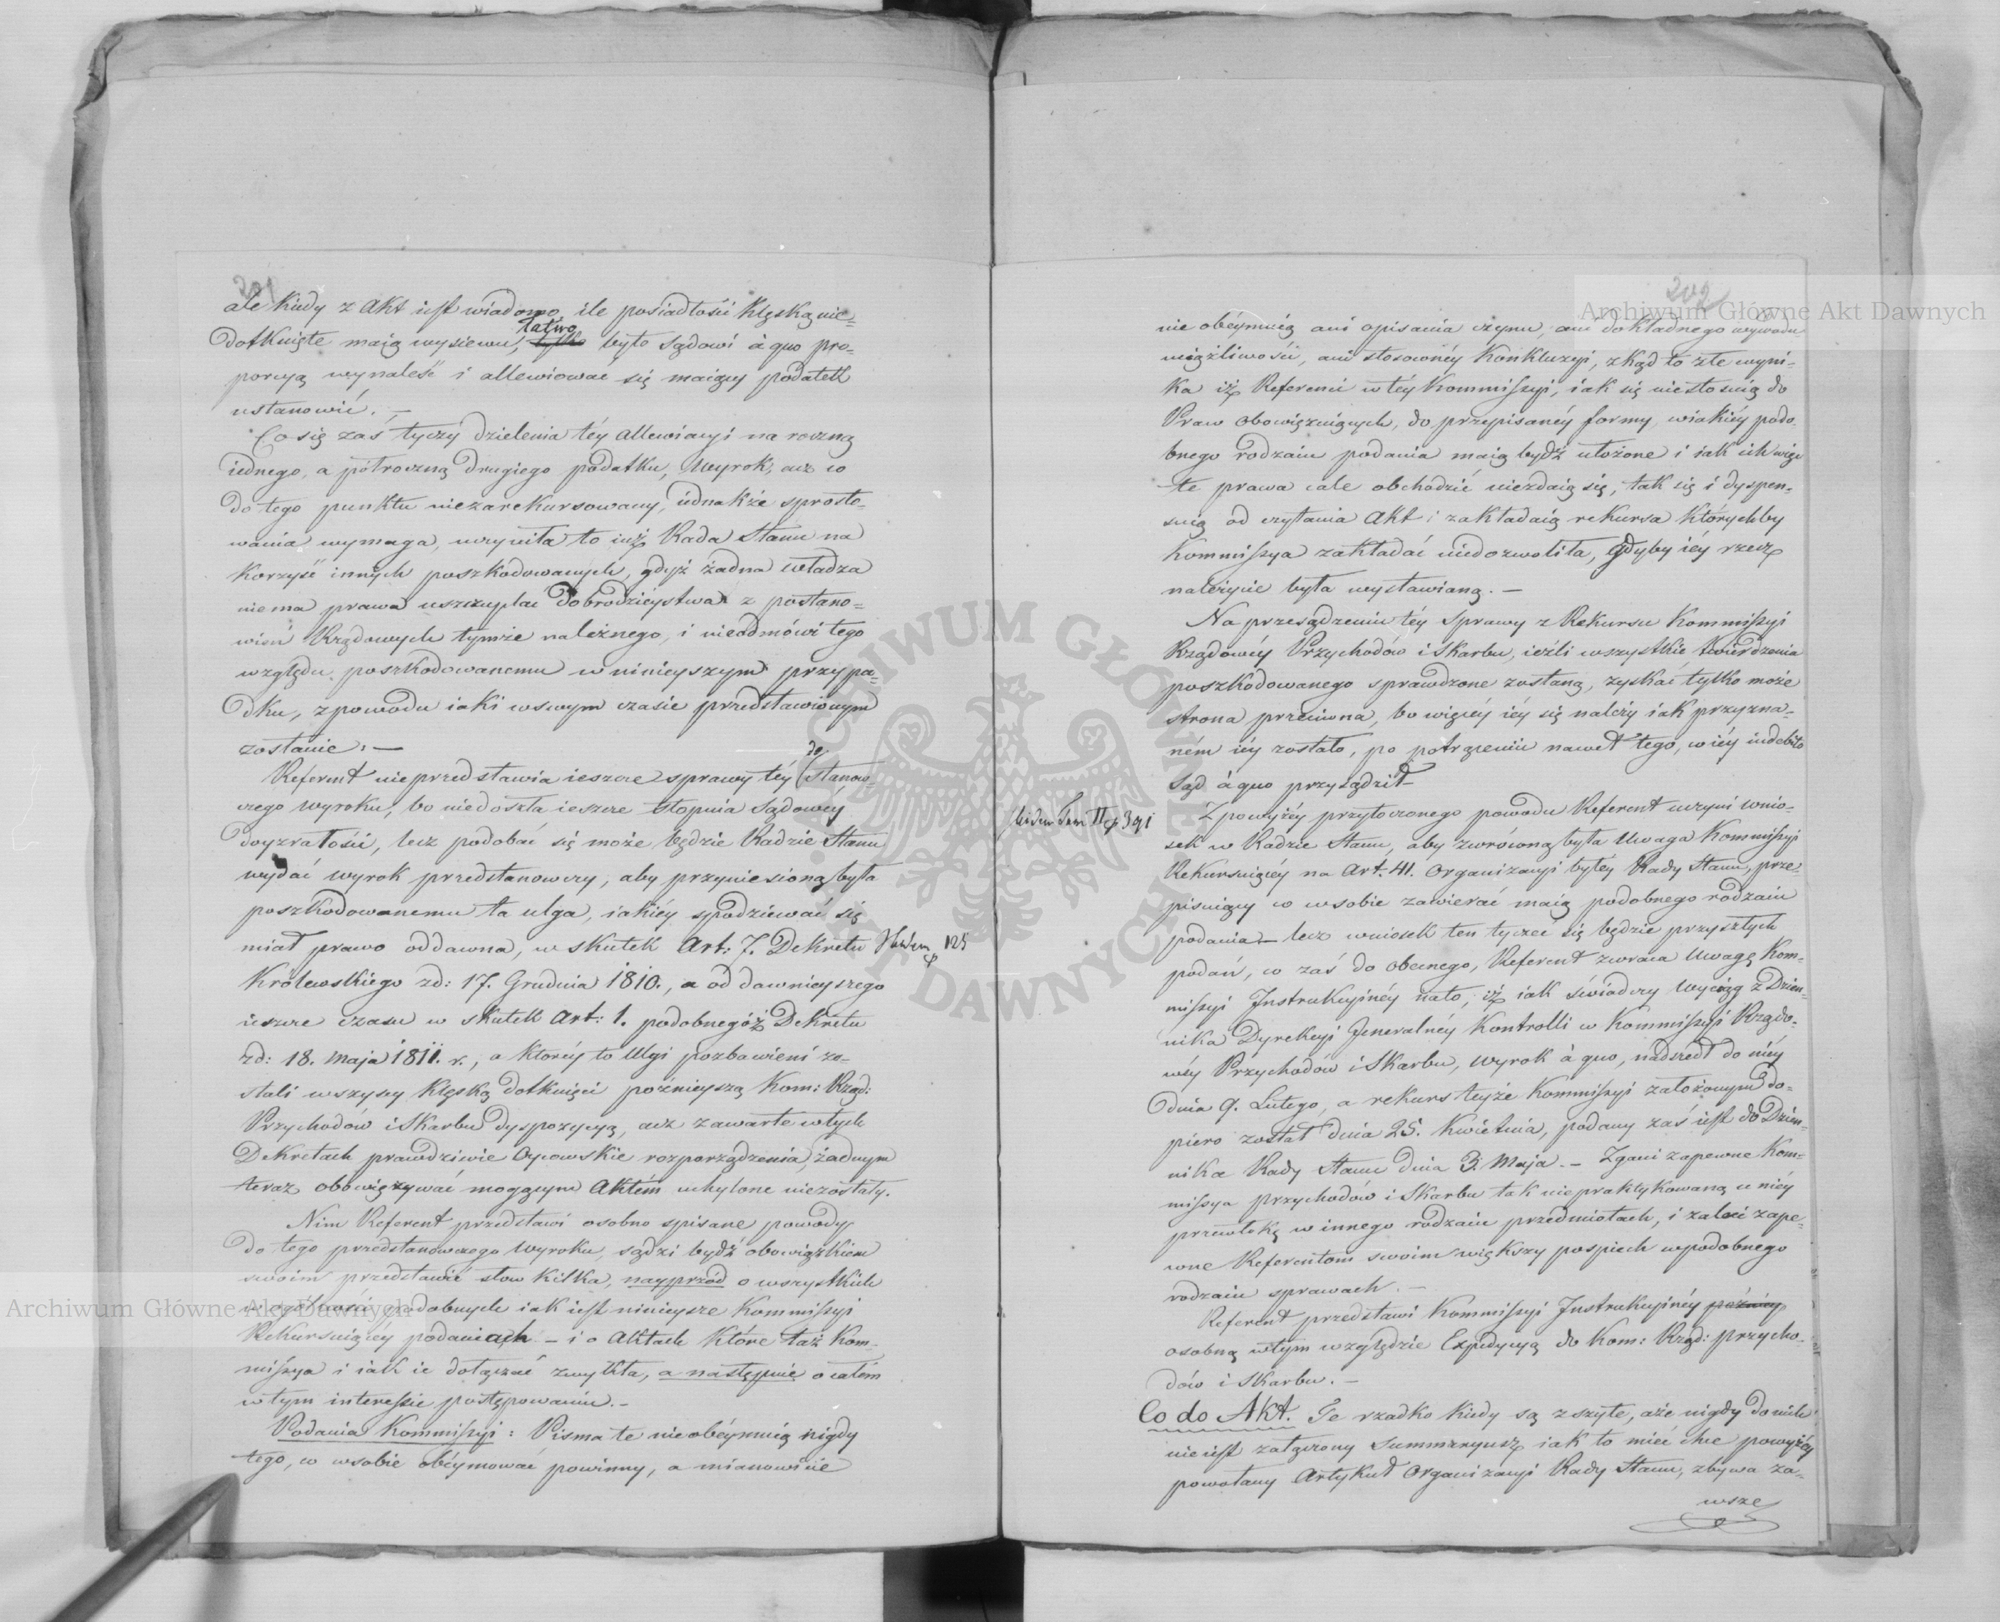 201
ale kiedy z Akt iest wiadomo, ile posiadłości klęską nie=
dotknięte maią wysiewu, łatwo było Sądowi à quo pro=
porcyą wynaleść i allewiować się maiący podatek
ustanowić. —
Co się zaś tyczy dzielenia téy allewiacyi na roczną
iednego, a półroczną drugiego podatku, Wyrok, acz co
do tego punktu niezarekursowany, iednakże sprosto=
wania wymaga, uczyniła to iuż Rada Stanu na
korzyść innych poszkodowanych, gdyż żadna władza
niema prawa uszczuplać dobrodzieystwa z postano=
wień Rządowych tymże należnego, i nieodmówi tego
względu poszkodowanemu w ninieyszym przypa=
dku, z powodu iaki w swym czasie przedstawionym
zostanie. —
Referent nieprzedstawia ieszcze sprawy téy do stanow=
czego wyroku, bo niedoszła ieszcze stopnia sądowey
doyrzałości, lecz podobać się może będzie Radzie Stanu
wydać wyrok przedstanowczy, aby przyniesioną była
poszkodowanemu ta ulga, iakiéy spodziewać się
miał prawo oddawna, w skutek Art: 7. Dekretu
125
Królewskiego zd: 17. Grudnia 1810., a od dawnieyszego
ieszcze czasu w skutek Art: 1. podobnegóż Dekretu
zd: 18. Maja 1811. r., a któréy to Ulgi pozbawieni zo=
stali wszyscy klęską dotknięci poźnieyszą Kom: Rząd:
Przychodów i Skarbu dyspozycyą, acz zawarte w tych
Dekretach prawdziwie Oycowskie rozporządzenia, żadnym
teraz obowięzywać mogącym Aktem uchylone niezostały.
Nim Referent przedstawi osobno spisane powody
do tego przedstanowczego Wyroku, sądzi bydź obowiązkiem
swoim przedstawić słow kilka, nayprzód o wszystkich
w ogólności podobnych iak iest ninieysze Kommissyi
Rekursuiącéy podaniach — i o Aktach które taż Kom=
missya i iak ie dołączać zwykła, a następnie o całém
w tym interessie postępowaniu. —
Podania Kommissyi: Pisma te nieobéymuią nigdy
tego, co w sobie obéymować powinny, a mianowicie
202
nie obéymuią ani opisania czynu, ani dokładnego wywodu
uciążliwości, ani stosownéy konkluzyi, zkąd to złe wyni=
ka iż Referenci w téy Kommissyi, iak się niestosuią do
Praw obowiązuiących, do przepisanéy formy, w iakiéy podo=
bnego rodzaiu podania maią bydź ułożone i iak ich więc
te prawa cale obchodzić niezdaią się, tak się i dyspen=
suią od czytania Akt i zakładaią rekursa którychby
Kommissya zakładać niedozwoliła, gdyby iéy rzecz
należycie była wystawianą. —
Na przesądzeniu téy Sprawy z Rekursu Kommissyi
Rządowéy Przychodów i Skarbu, ieźli wszystkie twierdzenia
poszkodowanego sprawdzone zostaną, zyskać tylko może
strona przeciwna, bo więcéy iéy się należy iak przyzna=
ném iéy zostało, po potrąceniu nawet tego, co iéy indebito
Sąd à quo przysądził.
Tom II 391
Z powyżéy przytoczonego powodu Referent uczyni wnio=
sek w Radzie Stanu, aby zwróconą była Uwaga Kommissyi
Rekursuiącéy na Art: 41. Organizacyi byłey Rady Stanu, prze=
pisuiący co w sobie zawierać maią podobnego rodzaiu
podania — lecz wniosek ten tyczeć się będzie przyszłych
podań, co zaś do obecnego, Referent zwraca Uwagę Kom=
missyi Instrukcyinéy na to, iż iak świadczy Wyciąg z Dzien=
nika Dyrekcyi Jeneralnéy Kontrolli w Kommissyi Rządo=
wéy Przychodów i Skarbu, Wyrok à quo, nadszedł do niéy
dnia 9. Lutego, a rekurs teyże Kommissyi założonym do=
piero został dnia 25. Kwietnia, podany zaś iest do Dzien=
nika Rady Stanu dnia 3. Maja. — Zgani zapewne Kom=
missya Przychodów i Skarbu tak niepraktykowaną u niéy
przewłokę w innego rodzaiu przedmiotach, i zaleci zape=
wne Referentom swoim większy pospiech w podobnego
rodzaiu sprawach. —
Referent przedstawi Kommissyi Instrukcyinéy
osobną w tym względzie Expedycyą do Kom: Rząd: Przycho=
dów i Skarbu. —
Co do Akt. Te rzadko kiedy są zszyte, a że nigdy do nich
nie iest załączony Summaryusz iak to mieć chce powyżéy
powołany Artykuł Organizacyi Rady Stanu, zbywa za=
wsze
Archiwum Główne Akt Dawnych
Archiwum Główne Akt Dawnych
ARCHIWUM GŁÓWNE AKT DAWNYCH